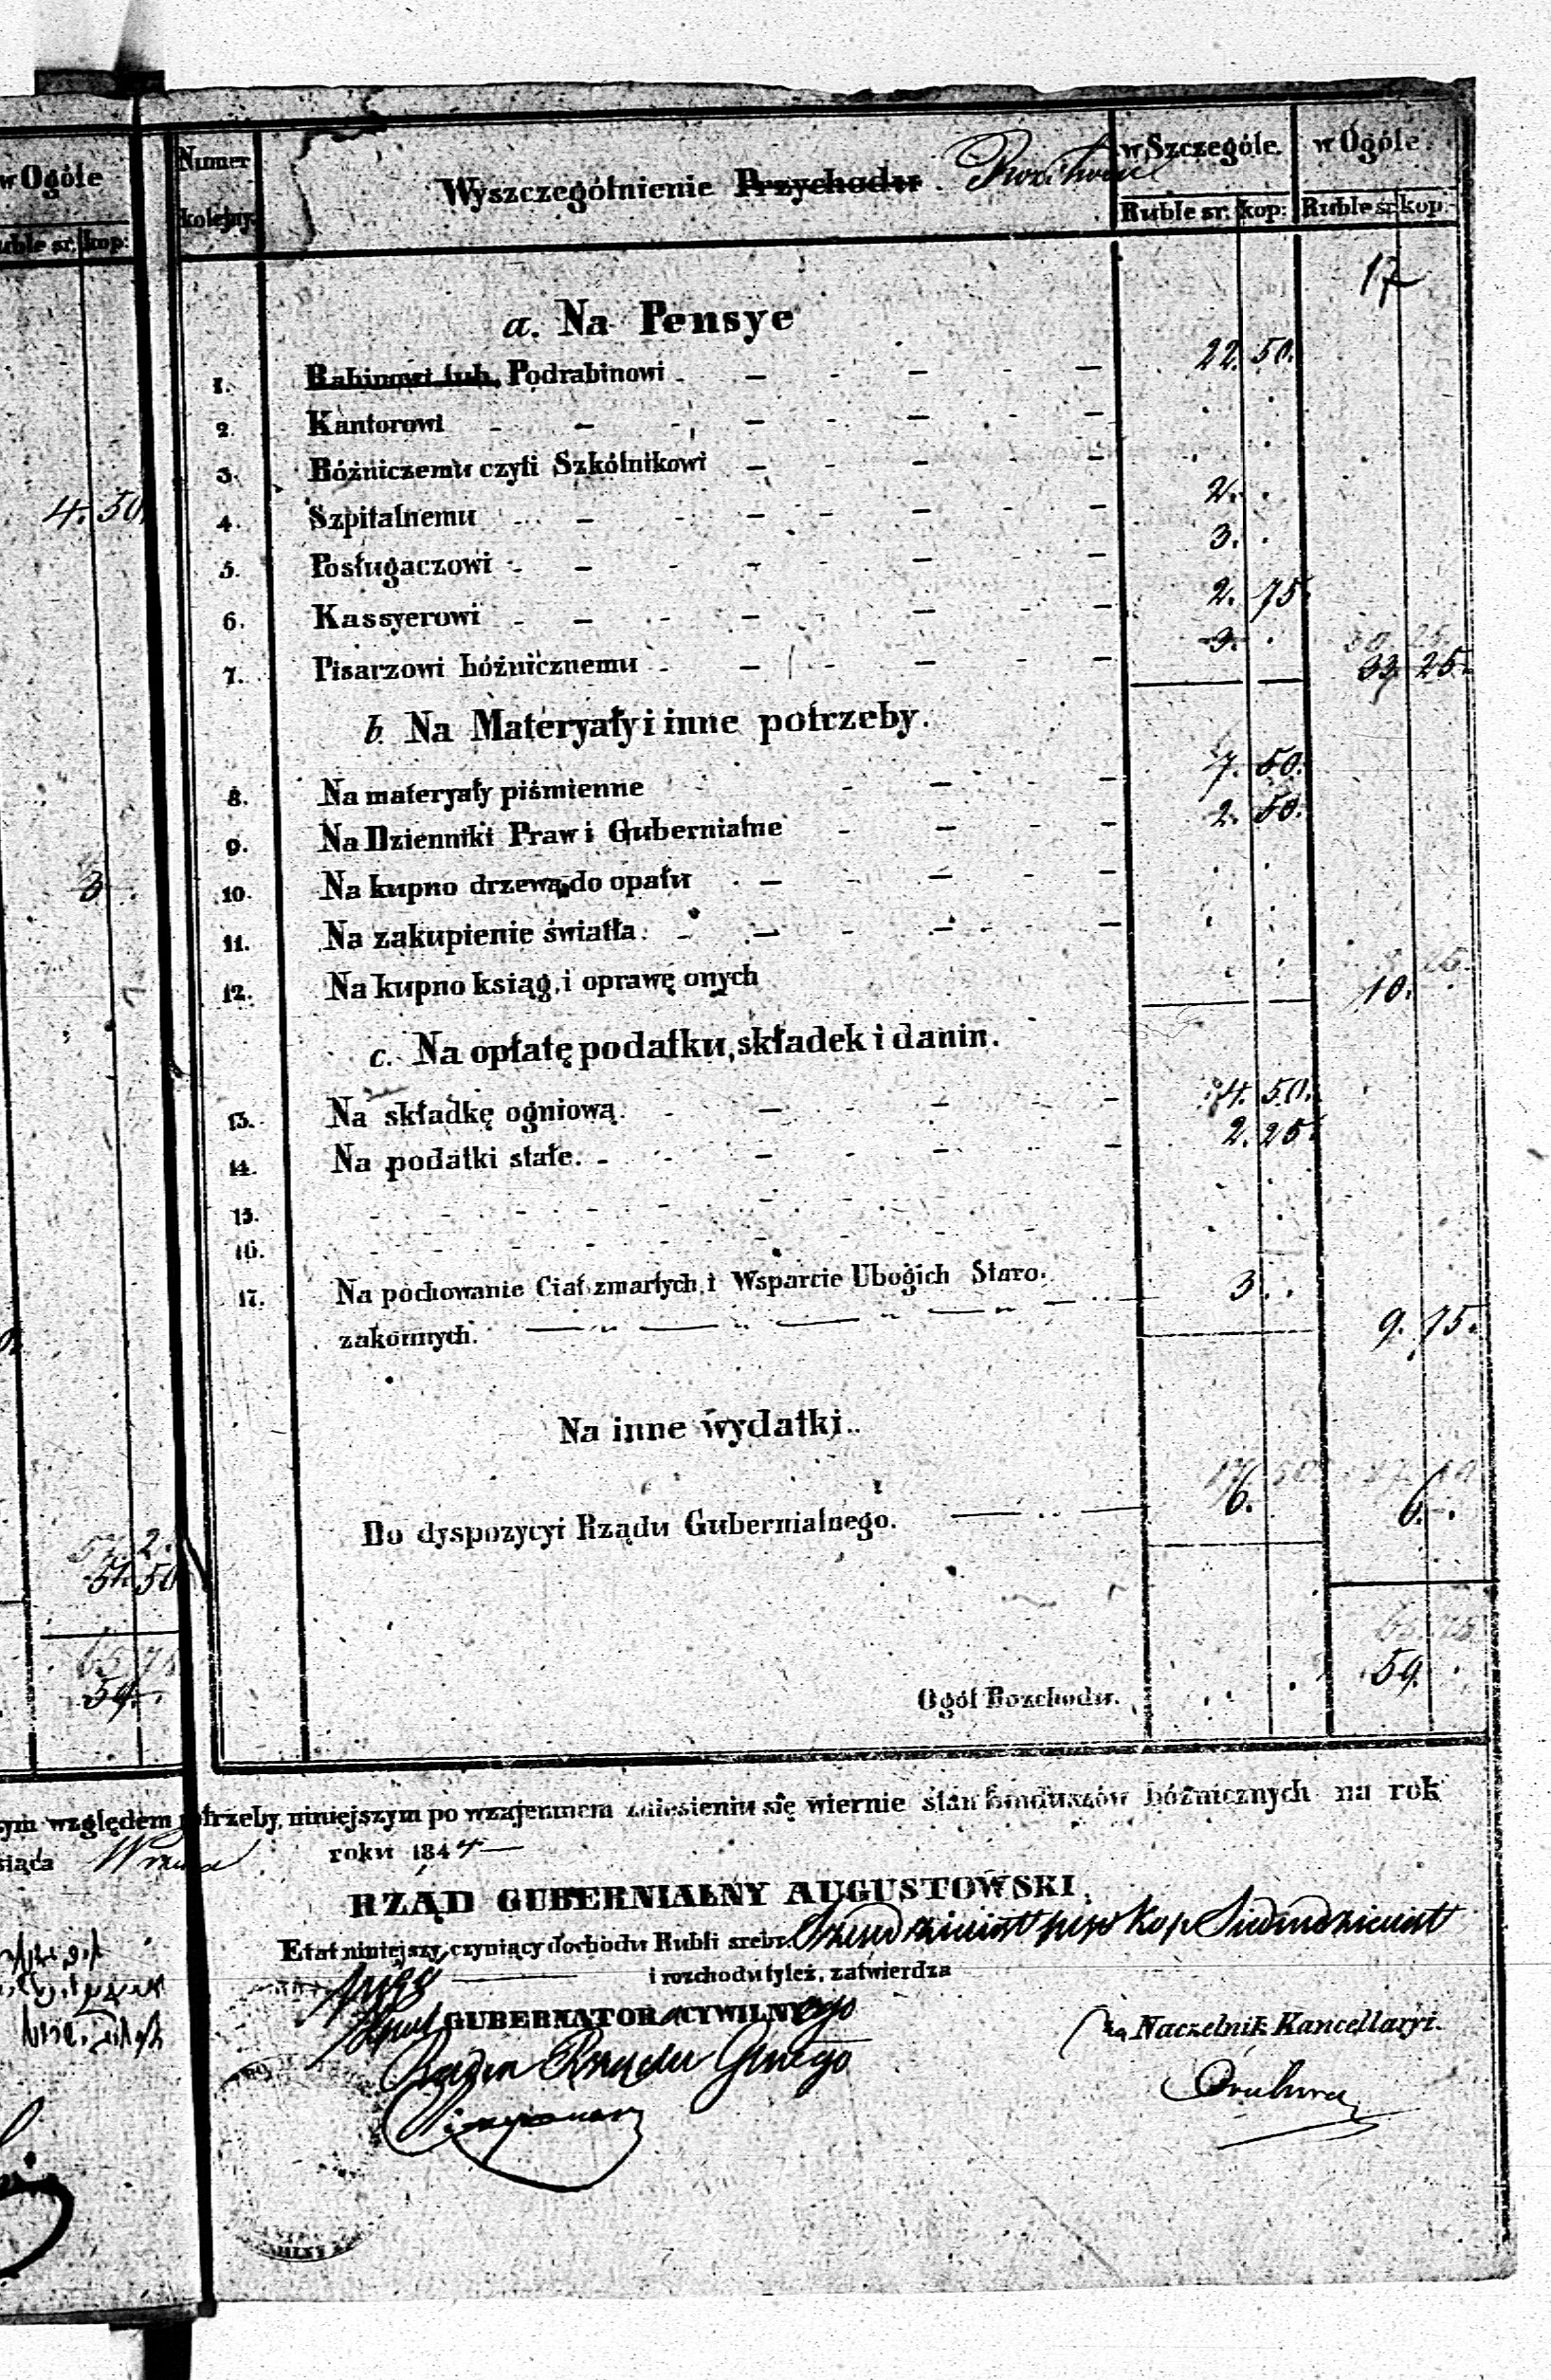 w Ogóle
Ruble sr. kop:
4. 50.
3 .
2.
51. 50
65 75
59. .
Numer kolejny. Wyszczególnienie Przychodu. Rozchodu w Szczególe. w Ogóle.
Ruble sr. kop: Ruble sr. kop:
17
a. Na Pensye
1. Rabinowi lub Podrabinowi - 22. 50.
2. Kantorowi . .
3. Bóźniczemu czyli Szkólnikowi . .
4. Szpitalnemu 2. .
5. Posługaczowi 3. .
6. Kassyerowi 2. 75
7. Pisarzowi bóżnicznemu 3. . 33 25.
b. Na Materyały i inne potrzeby.
8. Na materyały piśmienne 7. 50.
9. Na Dzienniki Praw i Gubernialne 2. 50.
10. Na kupno drzewa, do opału . .
11. Na zakupienie światła. . .
12. Na kupno ksiąg, i oprawę onych . . 10. .
c. Na opłatę podatku, składek i danin.
13. Na składkę ogniową. 4. 50.
14. Na podatki stałe. 2. 25.
15.
16.
17. Na pochowanie Ciał zmarłych, i Wsparcie Ubogich Staro.
zakonnych. 3. . 9. 75.
Na inne wydatki..
Do dyspozycyi Rządu Gubernialnego. 6. 6. .
Ogół Rozchodu. . . 59. .
tym względem potrzeby, niniejszym po wzajemnem zniesieniu się wiernie stan funduszów bóżnicznych na rok
roku 1844
RZĄD GUBERNIALNY AUGUSTOWSKI.
Etat niniejszy, czyniący dochodu Rubli srebr. Sześćdziesiąt pięć Kop Siedmdziesiąt
pięć i rozchodu tyleż, zatwierdza
GUBERNATORA CYWILNEgo
Radca Rządu Gunego
za Naczelnik Kancellaryi.